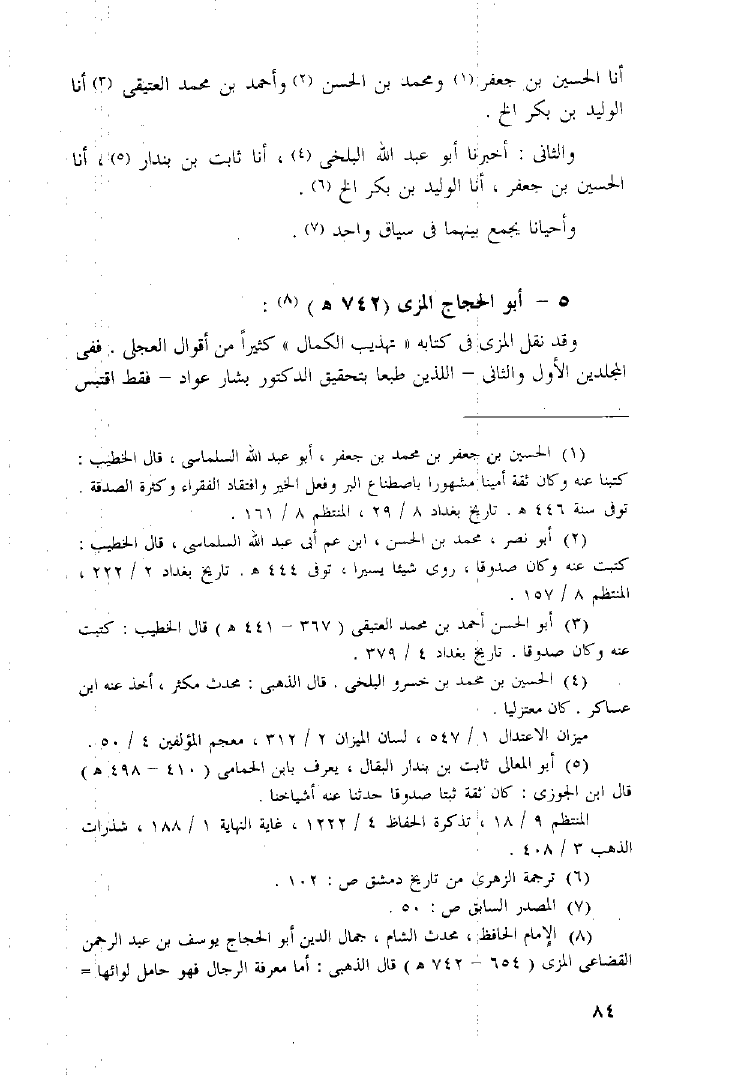 أنا الحسين بن جعفر (١) ومحمد بن الحسن (٢) وأحمد بن محمد العتيقى (٣) أنا
الوليد بن بكر الخ .
والثانى : أخبرنا أبو عبد الله البلخى (٤) ، أنا ثابت بن بندار (٥) ، أنا
الحسين بن جعفر ، أنا الوليد بن بكر الخ (٦) .
وأحيانا يجمع بينهما فى سياق واحد (٧) .
٥ – أبو الحجاج المزى (٧٤٢ ه) (٨) :
وقد نقل المزى فى كتابه « تهذيب الكمال » كثيراً من أقوال العجلى . ففى
المجلدين الأول والثانى – اللذين طبعا بتحقيق الدكتور بشار عواد – فقط اقتبس
(١) الحسين بن جعفر بن محمد بن جعفر ، أبو عبد الله السلماسى ، قال الخطيب :
كتبنا عنه وكان ثقة أمينا مشهورا باصطناع البر وفعل الخير وافتقاد الفقراء وكثرة الصدقة .
توفى سنة ٤٤٦ ه . تاريخ بغداد ٨ / ٢٩ ، المنتظم ٨ / ١٦١ .
(٢) أبو نصر ، محمد بن الحسن ، ابن عم أبى عبد الله السلماسى ، قال الخطيب :
كتبت عنه وكان صدوقا ، روى شيئا يسيرا ، توفى ٤٤٤ ه . تاريخ بغداد ٢ / ٢٢٢ ،
المنتظم ٨ / ١٥٧ .
(٣) أبو الحسن أحمد بن محمد العتيقى ( ٣٦٧ – ٤٤١ ه ) قال الخطيب : كتبت
عنه وكان صدوقا . تاريخ بغداد ٤ / ٣٧٩ .
(٤) الحسين بن محمد بن خسرو البلخى . قال الذهبى : محدث مكثر ، أخذ عنه ابن
عساكر . كان معتزليا .
ميزان الاعتدال ١ / ٥٤٧ ، لسان الميزان ٢ / ٣١٢ ، معجم المؤلفين ٤ / ٥٠ .
(٥) أبو المعالى ثابت بن بندار البقال ، يعرف بابن الحمامى ( ٤١٠ – ٤٩٨ ه )
قال ابن الجوزى : كان ثقة ثبتا صدوقا حدثنا عنه أشياخنا .
المنتظم ٩ / ١٨ ، تذكرة الحفاظ ٤ / ١٢٢٢ ، غاية النهاية ١ / ١٨٨ ، شذرات
الذهب ٣ / ٤٠٨ .
(٦) ترجمة الزهرى من تاريخ دمشق ص : ١٠٢ .
(٧) المصدر السابق ص : ٥٠ .
(٨) الإمام الحافظ ، محدث الشام ، جمال الدين أبو الحجاج يوسف بن عبد الرحمن
القضاعى المزى ( ٦٥٤ – ٧٤٢ ه ) قال الذهبى : أما معرفة الرجال فهو حامل لوائها =
٨٤